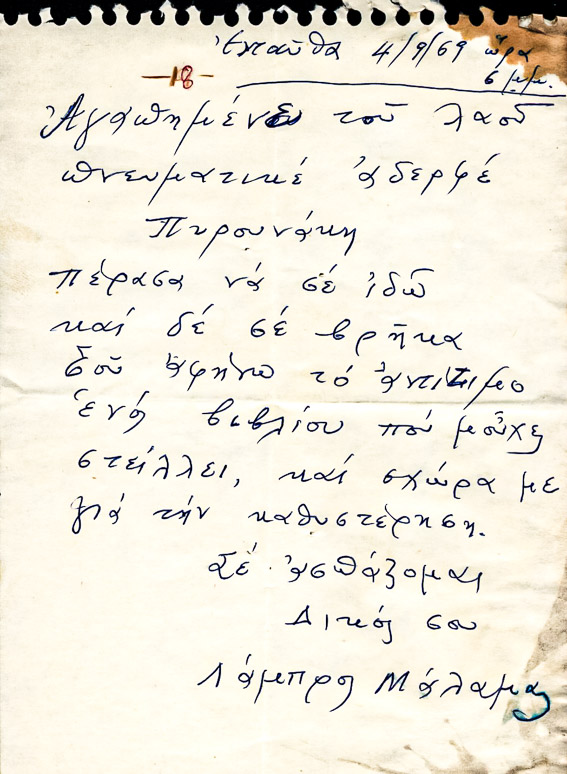 Ἐνταῦθα 4/9/69 ὥρα
6 μ.μ.
-18-
Ἀγαπημένε τοῦ λαοῦ
πνευματικέ ἀδερφέ
Πυρουνάκη
πέρασα νά σέ ἰδῶ
καί δέ σέ βρῆκα
Σοῦ ἀφήνω τό ἀντίτιμο
ἑνός βιβλίου πού μοὖχες
στείλλει, καί σχώρα με
γιά τήν καθυστέρηση.
Σέ ἀσπάζομαι
Δικός σου
Λάμπρος Μάλαμας